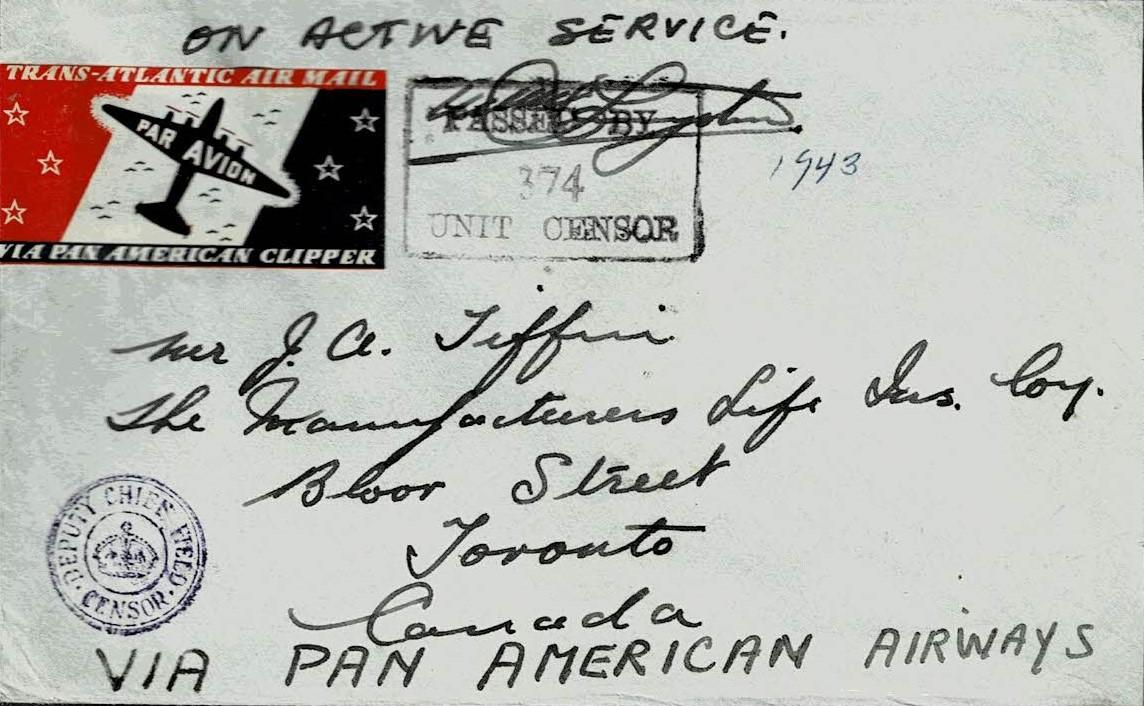 ON ACTIVE SERVICE.
TRANS-ATLANTIC AIR MAIL
PAR AVION
VIA PAN AMERICAN CLIPPER
PASSED BY
374
UNIT CENSOR
1943
J. A. Tiffin
The Manufacturers Life Ins. Coy.
Bloor Street
Toronto
Canada
DEPUTY CHIEF FIELD CENSOR
VIA PAN AMERICAN AIRWAYS